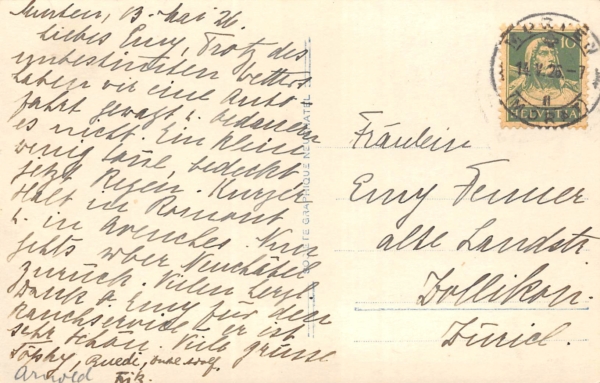 Murten, 13. Mai 26.
Liebes Emy, Trotz des
unbestimmten Wetters
haben wir eine Auto-
fahrt gewagt u. bedauern
es nicht. Ein klein
wenig Sonne, bedeckt
jetzt Regen. Kurzer
Halt in Romont
u. in Avenches. Nun
gehts über Neuchâtel
zurück. Vielen herzl.
Dank Emy für den
Rauchservice er ist
sehr schön. Viele Grüsse
Ruedi,
Arnold
SOCIÉTÉ GRAPHIQUE NEUCHATEL
MURTEN
14.V.26.-7
10
HELVETIA
Fräulein
Emy Fenner
alte Landstr.
Zollikon.
Zürich.